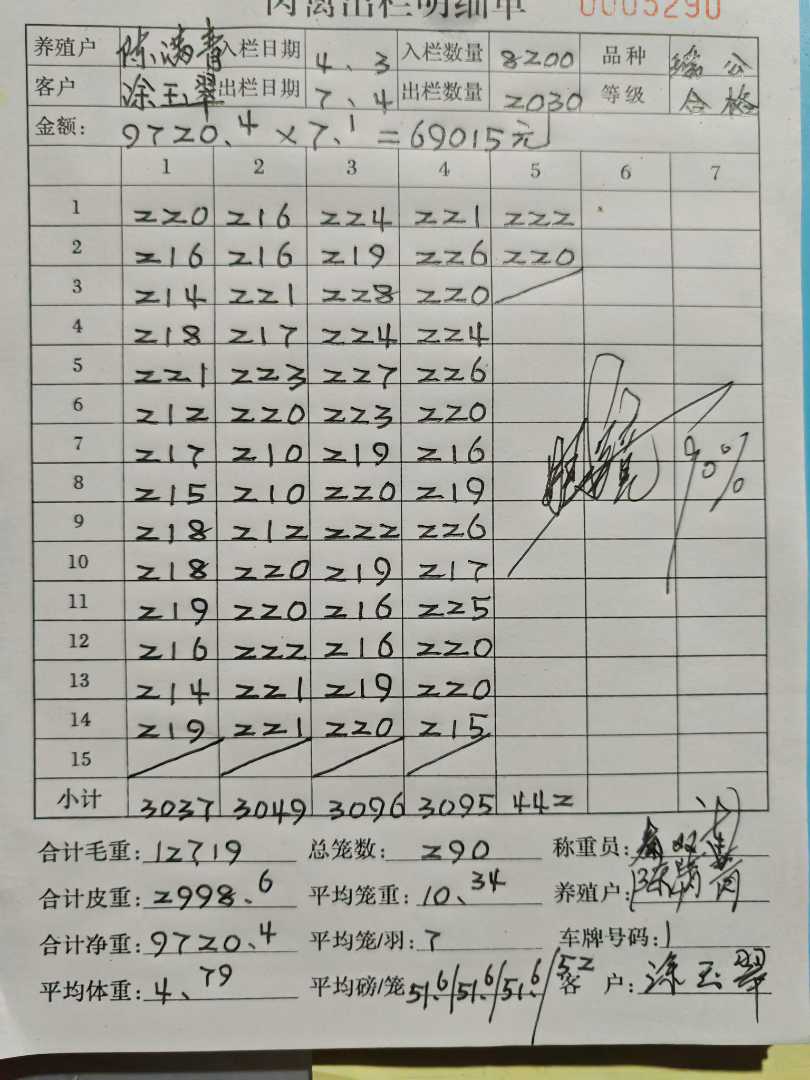 肉禽出栏明细单 0005290
养殖户 陈满青 入栏日期 4、3 入栏数量 8200 品种 公
客户 涂玉翠 出栏日期 7、4 出栏数量 2030 等级 合格
金额: 9720.4 × 7.1 = 69015元
1 2 3 4 5 6 7
1 220 216 224 221 222
2 216 216 219 226 220
3 214 221 228 220
4 218 217 224 224
5 221 223 227 226
6 212 220 223 220
7 217 210 219 216 90%
8 215 210 220 219
9 218 212 222 226
10 218 220 219 217
11 219 220 216 225
12 216 222 216 220
13 214 221 219 220
14 219 221 220 215
15
小计 3037 3049 3096 3095 442
合计毛重: 12719 总笼数: 290 称重员:
合计皮重: 2998.6 平均笼重: 10、34 养殖户: 陈满青
合计净重: 9720.4 平均笼/羽: 7 车牌号码: 1
平均体重: 4、79 平均磅/笼 51.6/51.6/51.6/52 客 户: 涂玉翠